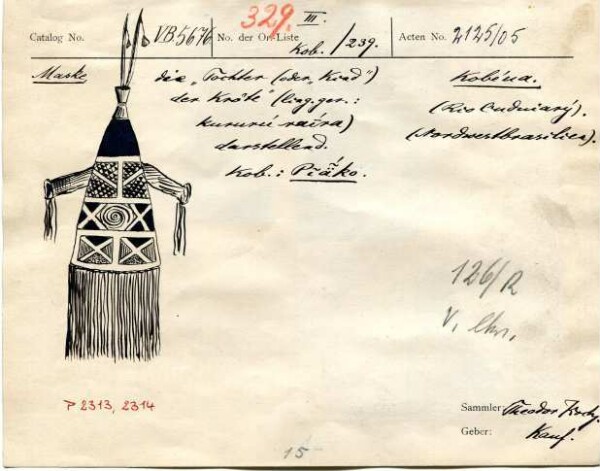 329. III.
Catalog No. VB 5676 No. der Or.-Liste Kob./239. Acten No. 2125/05
Maske die „Tochter (oder „Kind") Kobéua.
der Kröte" (ling. ger.: (Rio Cuduiarý).
kururú raíra) (Nordwestbrasilien).
darstellend.
Kob.: Piáko.
126/R
V.
P 2313, 2314
Sammler: Theodor Koch.
Geber: Kauf.
15